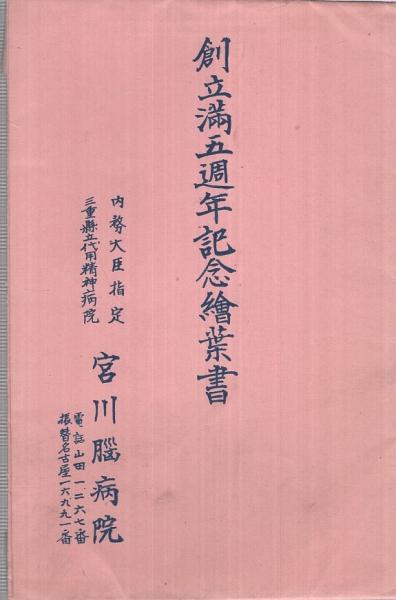 創立満五週年記念繪葉書
内務大臣指定
三重縣立代用精神病院
宮川腦病院
電話山田一二六七番
振替名古屋一六九九一番